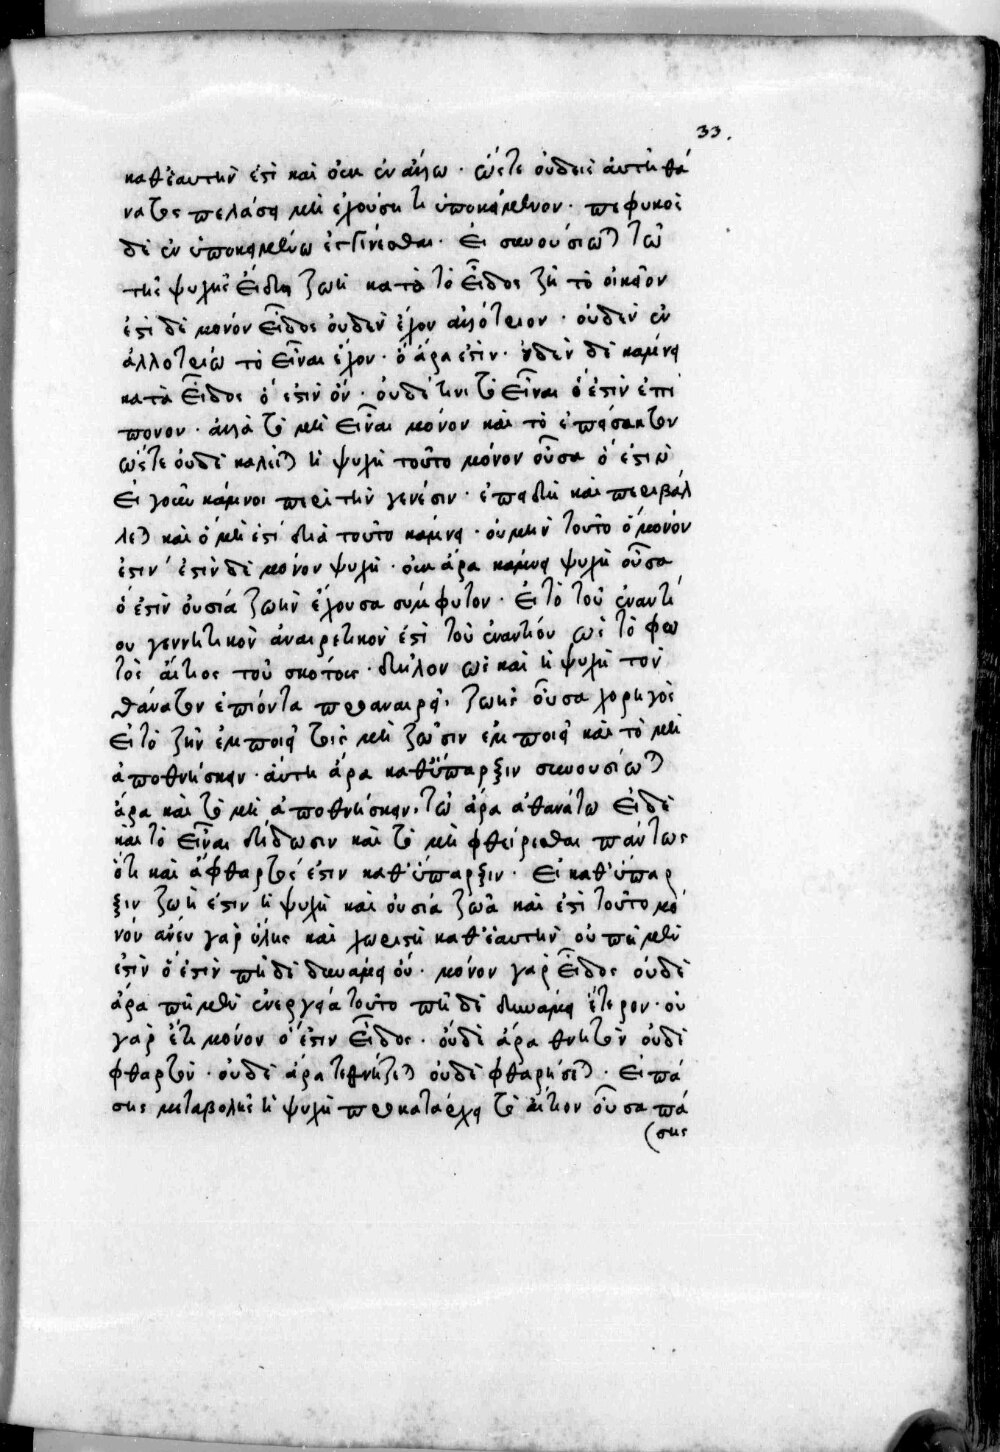 33.
καθ' ἑαυτὴν ἐστὶ καὶ οὐκ ἐν ἄλλω · ὥστε οὐδεὶς αὐτῆ θά
νατος πελάσει μὴ ἐχούση τὶ ὑποκείμενον · πεφυκὸς
δὲ ἐν ὑποκειμένω ἐγγίνεσθαι · Εἰ συνουσίωται τῶ
τῆς ψυχῆς εἴδει ζωὴ κατὰ τὸ εἶδος ζῆ τὸ οἰκεῖον
ἐστὶ δὲ μονὸν εἶδος οὐδὲν ἔχον ἀλλότριον · οὐδὲν ἐν
ἀλλοτρίω τὸ εἶναι ἔχον · ὅ ἄρα ἐστιν · οὐδὲν δὲ κάμνει
κατὰ εἶδος ὅ ἐστιν ὂν · οὐδέ τινι τὸ εἶναι ὅ ἐστὶν ἐπί
πονον · ἀλλὰ τὸ μὴ εἶναι μόνον καὶ τὸ ἐπείσακτον
ὥστε οὐδὲ καλεῖται ἡ ψυχὴ τοῦτο μόνον οὖσα ὅ ἐστιν
Εἰ γοῦν κάμνοι περὶ τὴν γενέσιν · ἐπειδὴ καὶ περιβάλ
λεται καὶ ὅ μὴ ἐστί διὰ τοῦτο κάμνει · οὐ μὴν τοῦτο ὅ μονόν
ἐστιν · ἐστὶν δὲ μόνον ψυχὴ · οὐκ ἄρα κάμνει ψυχὴ οὖσα
ὅ ἐστὶν οὐσία ζωὴν ἔχουσα σύμφυτον · Εἰ τὸ τοῦ ἐναντί
ου γεννητικὸν ἀναιρετικὸν ἐστὶ τοῦ ἐναντίου ὡς τὸ φω
τὸς αἴτιος τοῦ σκότους · δῆλον ὡς καὶ ἡ ψυχὴ τὸν
θάνατον ἐπιόντα προαναιρεῖ, ζωῆς οὖσα χορηγὸς
Εἰ τὸ ζῆν ἐμποιεῖ τοῖς μὴ ζῶσιν ἐμποιεῖ καὶ τὸ μὴ
ἀποθνήσκειν · αὐτὴ ἄρα καθ' ὕπαρξιν συνουσίωται
ἄρα καὶ τὸ μὴ ἀποθνήσκειν · τῶ ἄρα ἀθανάτω Εἰ δὲ
καὶ τὸ εἶναι δίδωσιν καὶ τὸ μὴ φθείρεσθαι πάντως
ὅτι καὶ ἄφθαρτός ἐστιν καθ' ὕπαρξιν · Εἰ καθ' ὕπαρ
ξιν ζωὴ ἐστιν ἡ ψυχὴ καὶ οὐσία ζῶσα καὶ ἐστὶ τοῦτο μό
νον ἄνευ γὰρ ὕλης καὶ χωριστὴ καθ' ἑαυτὴν οὐ πῆ μὲν
ἐστὶν ὅ ἐστὶν πῆ δὲ δυνάμει οὐ · μόνον γὰρ εἶδος οὐδὲ
ἄρα πῆ μὲν ἐνεργεία τοῦτο πῆ δὲ δυνάμει ἕτερον · οὐ
γὰρ ἔτι μόνον ὅ ἐστιν εἶδος · οὐδὲ ἄρα θνητὸν οὐδὲ
φθαρτὸν · οὐδὲ ἄρα τεθνήξεται οὐδὲ φθαρήσεται · Εἰ πά
σης μεταβολῆς ἡ ψυχὴ προκατάρχει τὸ αἴτιον οὖσα πά
(σης